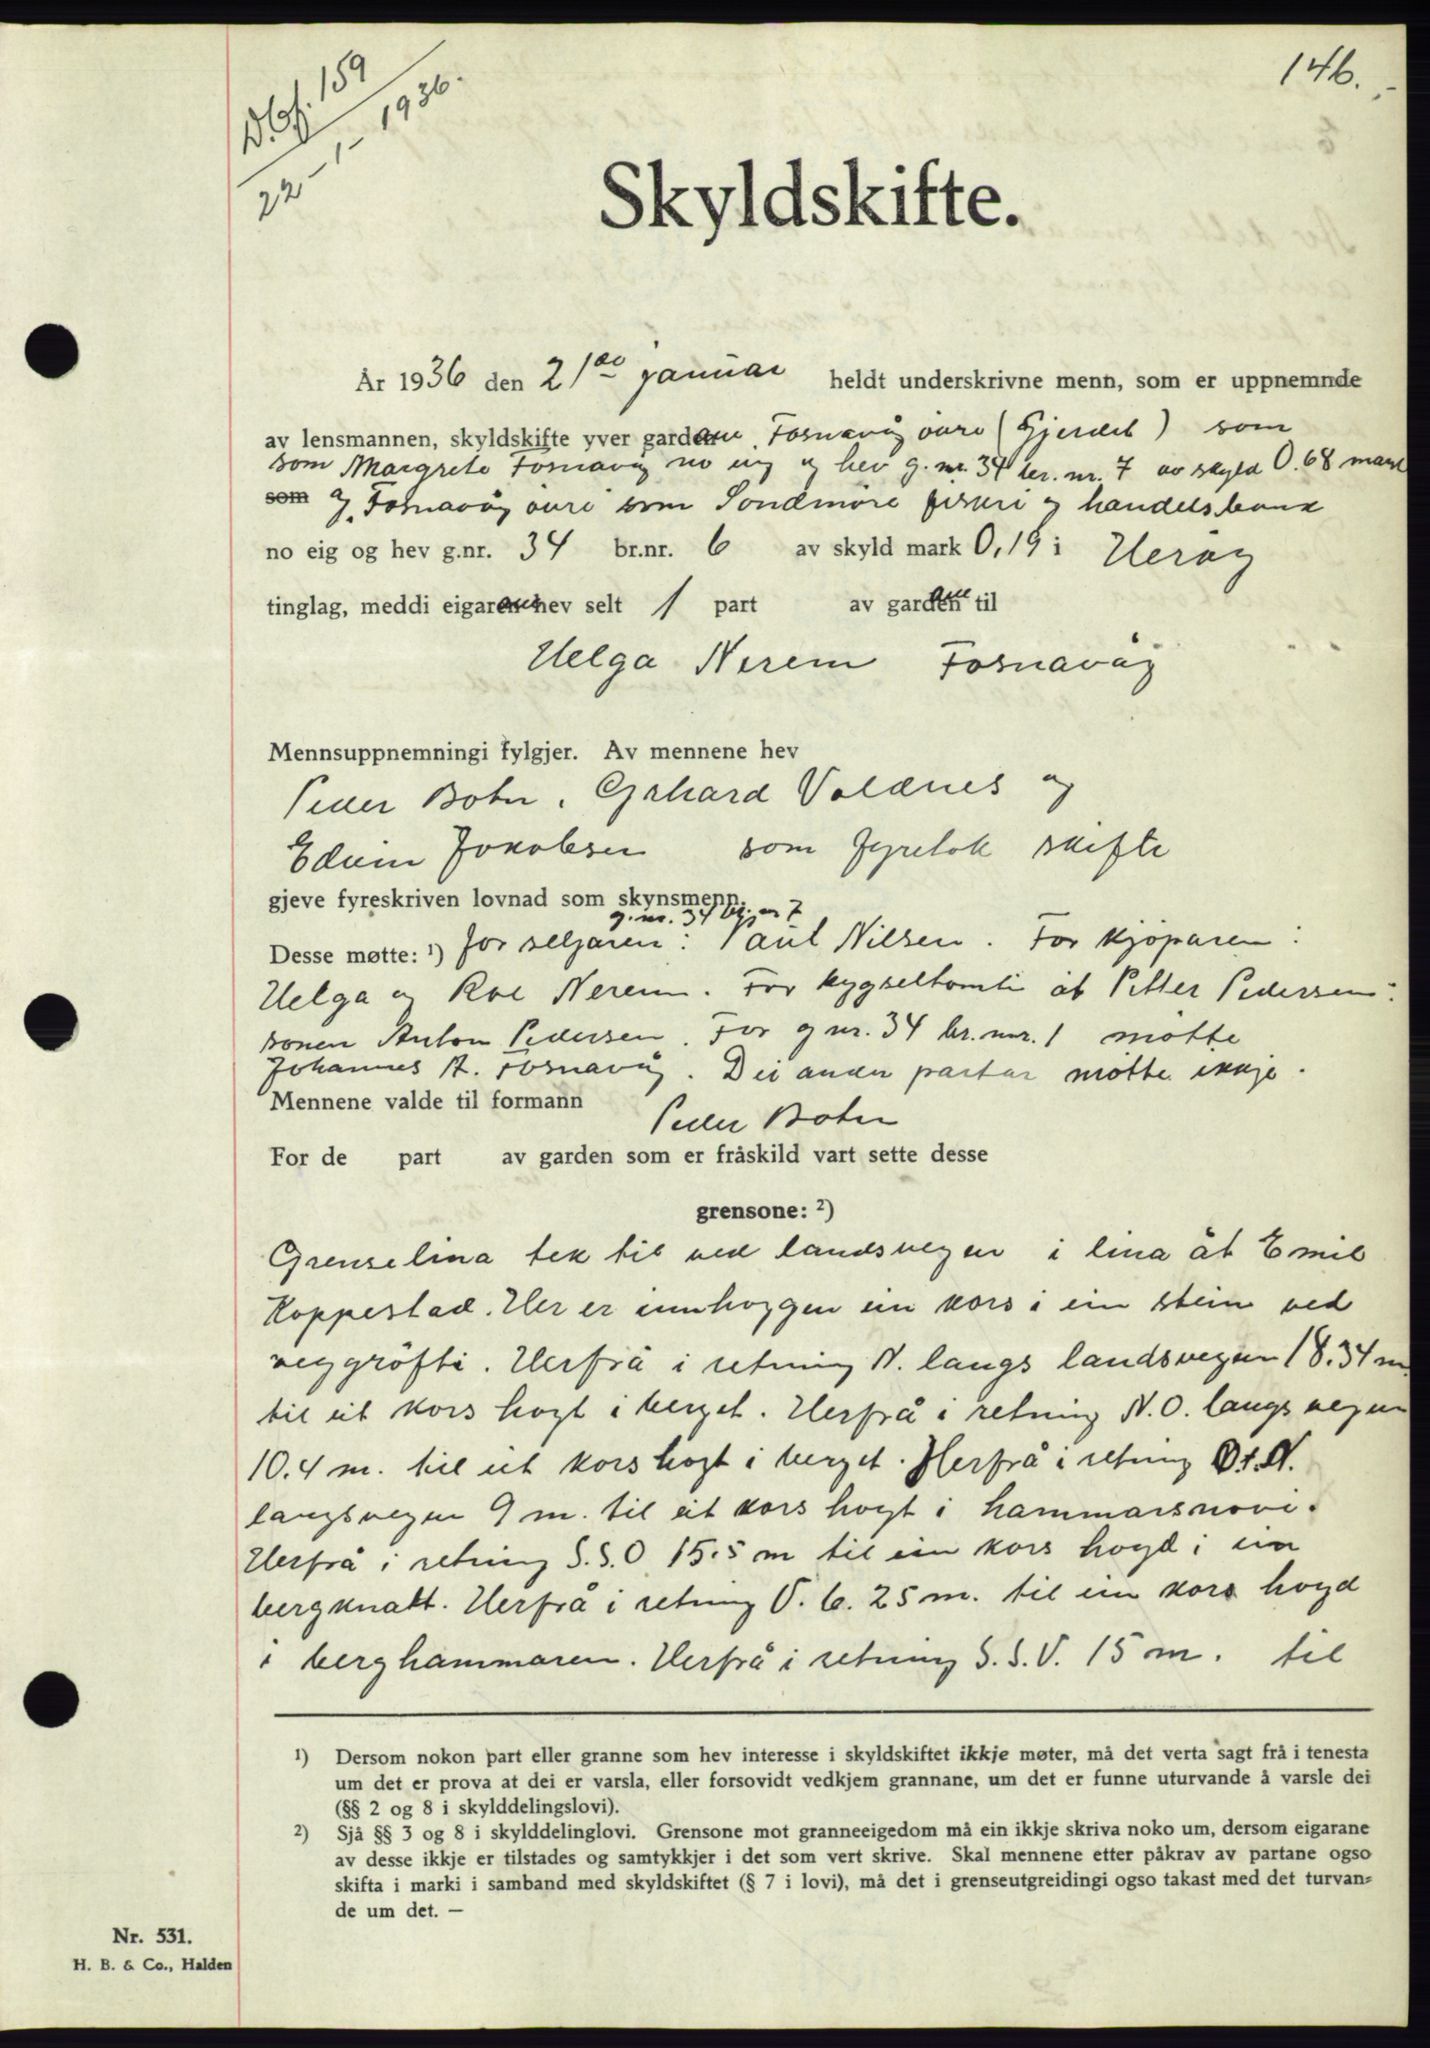 146.
Dbf. 159
22-1-1936.
Skyldskifte.
År 1936 den 21de januar heldt underskrivne menn, som er uppnemnde
av lensmannen, skyldskifte yver gardane Fosnavåg øvre (Gjerdet) som
som Margrete Fosnavåg no eig og hev g.nr. 34 br.nr. 7 av skyld 0.68 mark
som og Fosnavåg øvre som Søndmøre fiskeri og handelsbank
no eig og hev g.nr. 34 br.nr. 6 av skyld mark 0,19 i Herøy
tinglag, meddi eigarane hev selt 1 part av gardane til
Helga Nerem Fosnavåg
Mennsuppnemningi fylgjer. Av mennene hev
Peder Botn, Gerhard Voldnes og
Edvin Jakobsen som fyretok skifte
gjeve fyreskriven lovnad som skynsmenn.
g.nr. 34 br.nr 7
Desse møtte: ¹) for seljaren: Paul Nilsen. For kjøparen:
Helga og Roe Nerem. For bygseltomti åt Petter Pedersen:
sonen Anton Pedersen. For g nr. 34 br.nr. 1 møtte
Johannes A. Fosnavåg. Dei andre partar møtte ikkje.
Mennene valde til formann
Peder Botn
For de part av garden som er fråskild vart sette desse
grensone: ²)
Grenselina tek til ved landsvegen i lina åt Emil
Koppestad. Her er innhoggen ein kors i ein stein ved
veggrøfti. Herfrå i retning N. langs landsvegen 18.34 m.
til eit kors hogt i berget. Herfrå i retning N.O. langs vegen
10.4 m. til eit kors hogt i berget. Herfrå i retning O.t.N.
langs vegen 9 m. til eit kors hogt i hammarsnovi.
Herfrå i retning S.S.O 15.5 m til ein kors hogd i ein
bergknatt. Herfrå i retning V. 6.25 m. til ein kors hogd
i berghammaren. Herfrå i retning S.S.V. 15 m. til
¹) Dersom nokon part eller granne som hev interesse i skyldskiftet ikkje møter, må det verta sagt frå i tenesta
um det er prova at dei er varsla, eller forsovidt vedkjem grannane, um det er funne uturvande å varsle dei
(§§ 2 og 8 i skylddelingslovi).
²) Sjå §§ 3 og 8 i skylddelinglovi. Grensone mot granneeigedom må ein ikkje skriva noko um, dersom eigarane
av desse ikkje er tilstades og samtykkjer i det som vert skrive. Skal mennene etter påkrav av partane ogso
skifta i marki i samband med skyldskiftet (§ 7 i lovi), må det i grenseutgreidingi ogso takast med det turvan-
de um det. —
Nr. 531.
H. B. & Co., Halden